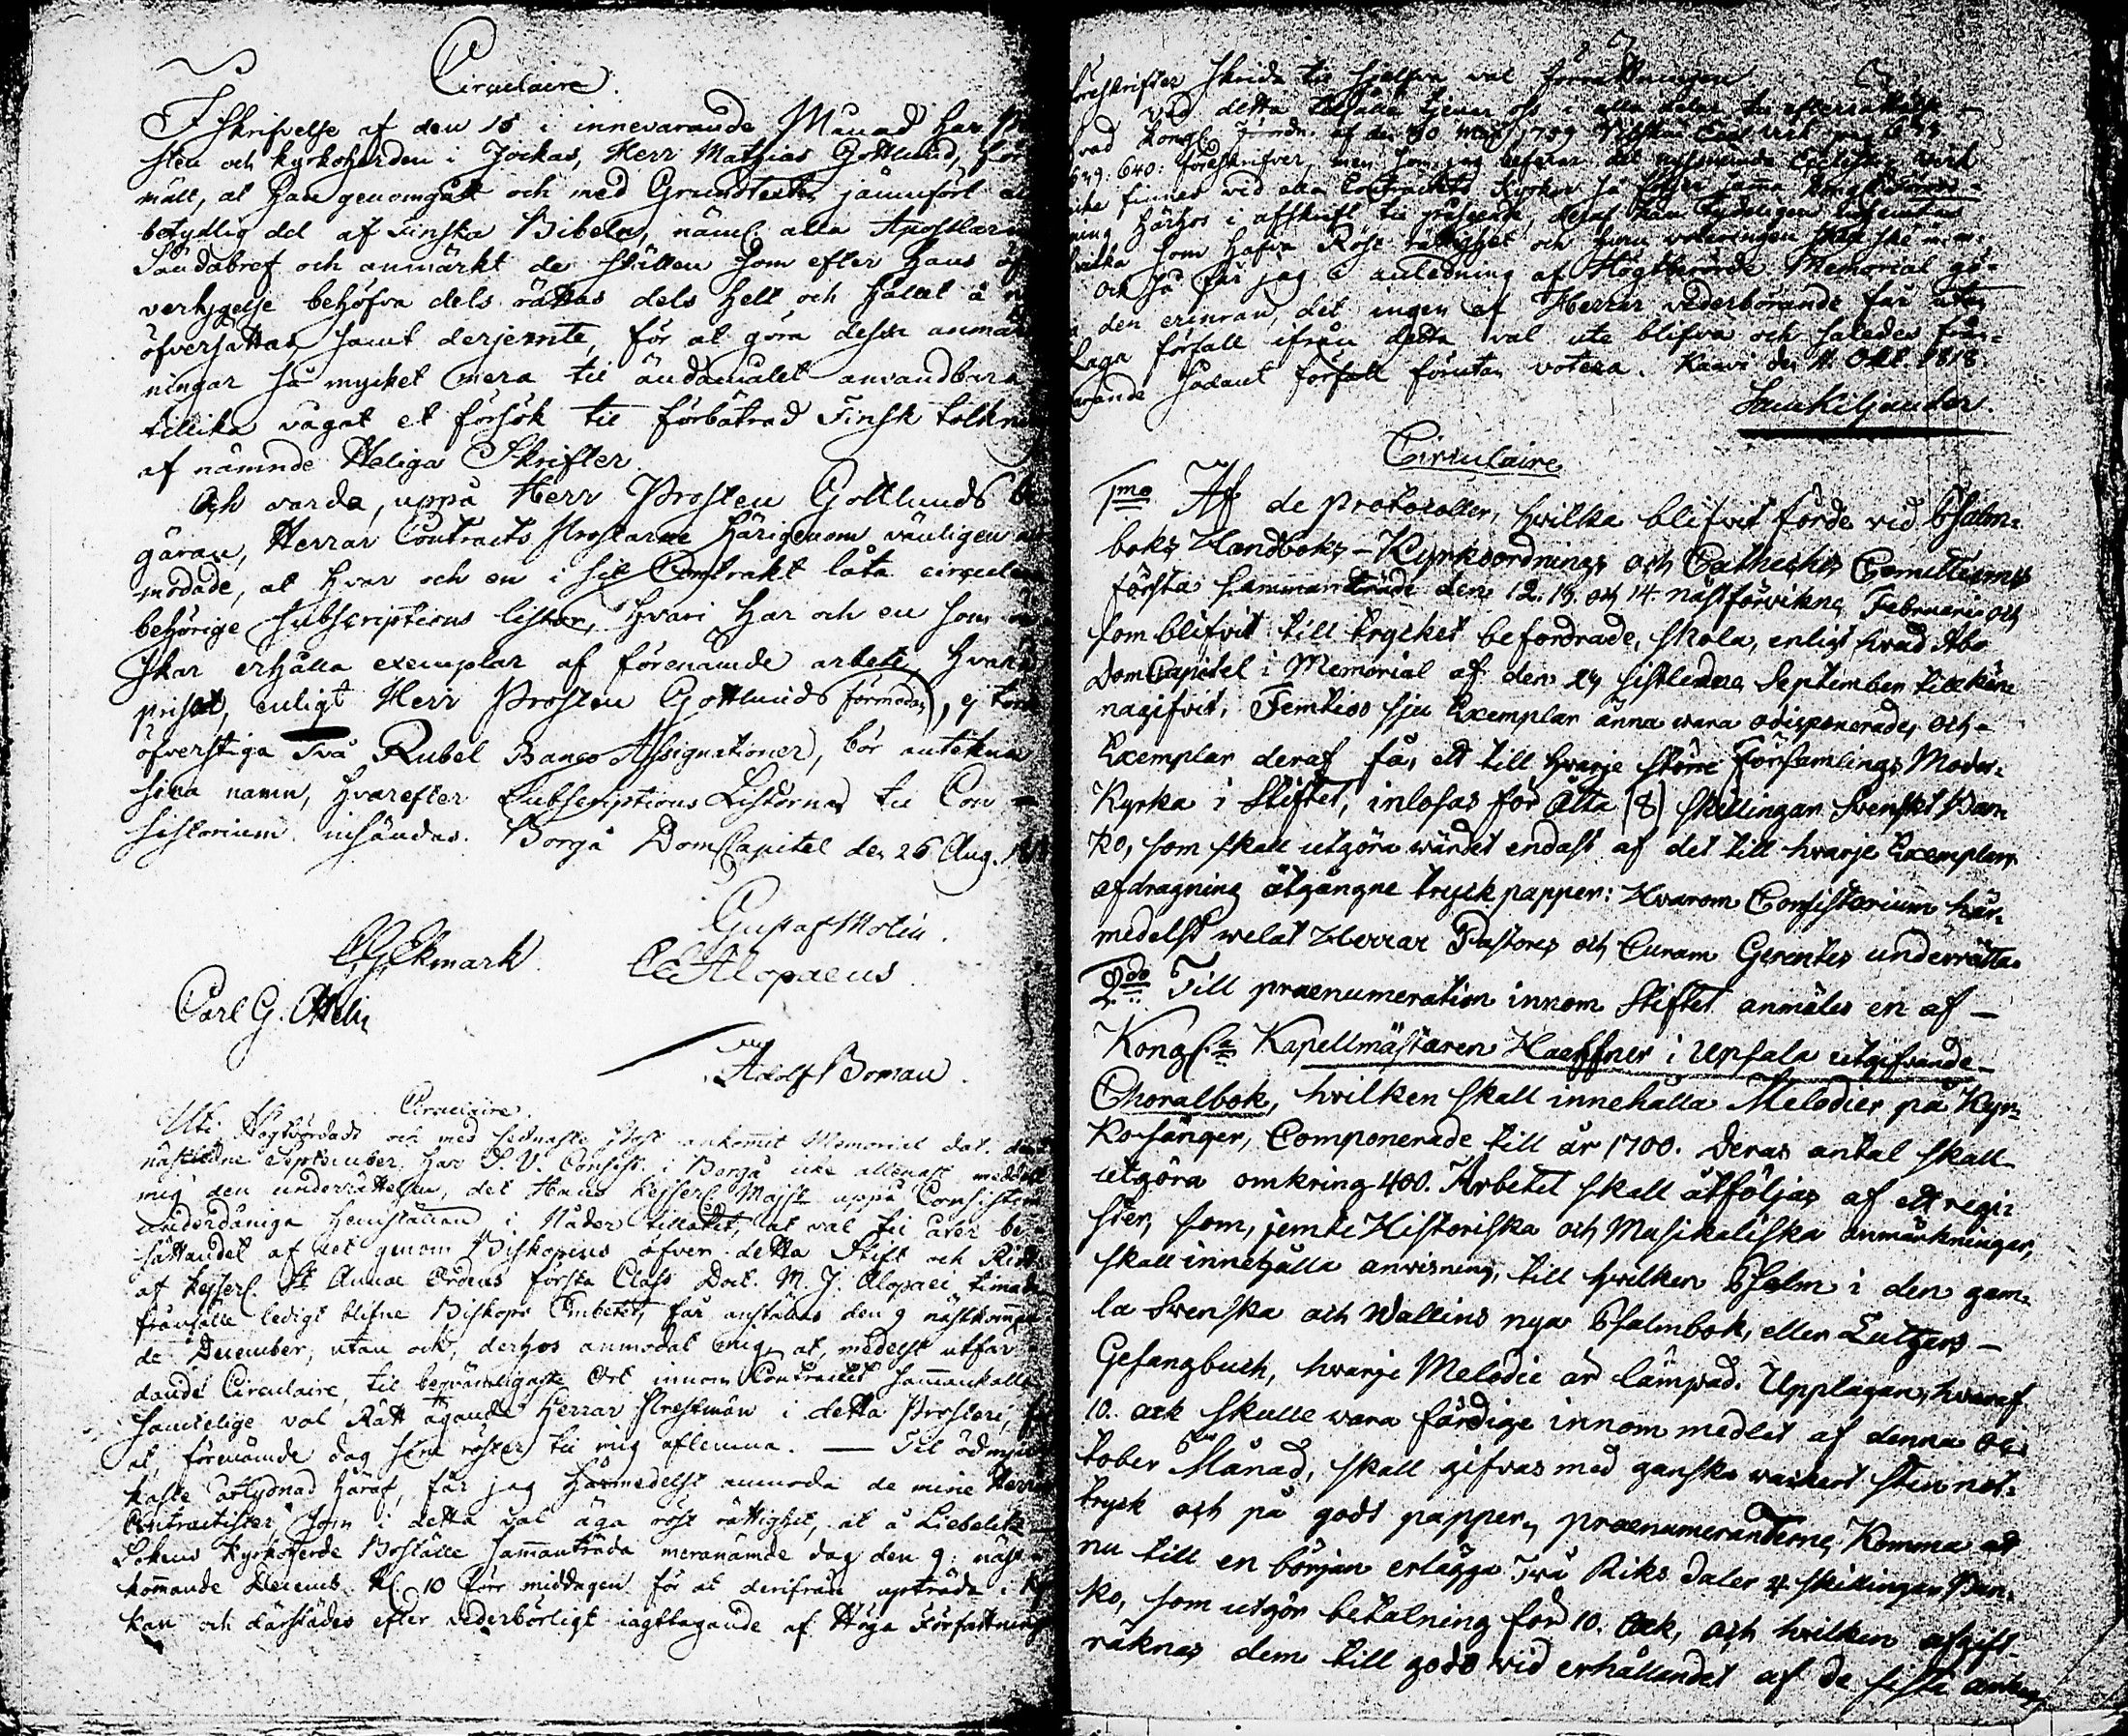 Circulaire.
I skrifvelse af den 18 i innevarande Månad har Pro
sten och kyrkoherden i Jockas, Herr Mathias Gottlund, för
mält, at han genomgått och med Grundtexten jämnfört en
betydlig del af Finska Bibeln, näml. alla Apostlarnes
Sändabref och anmärkt de ställen som efter hans öf
vertygelse behöfva dels rättas dels helt och hållet å n
öfversättas, samt derjemte, för at göra dessa anmärk
ningar så mycket mera til ändamålet användbara
tillika vågat et försök til förbätrad Finsk tolkn
af nämnde Heliga Skrifter.
Och varda, uppå Herr Prosten Gottlunds be
gäran, Herrar Contracts Prostarne härigenom vänligen an
modade, at hvar och en i sit Contrakt låta circulera
behörige subscriptions listor, hvari har och en som ön
skar erhålla exemplar af förenämde arbete, hvars
priset, enligt Herr Prosten Gottlunds förmodan, ej torde
öfverstiga Två Rubel Banco Assignationer, bör antekna
sina namn, hvarefter Subscriptions Listorna til Con
sistorium insändas. Borgå DomCapitel den 26 Aug.
Gustaf Molin.
Ekmark. Alopaeus.
Carl G. Ottelin
Adolf Boman.
Circulaire.
Uti Högtvördade och med sednaste Post ankommit Memorial dat. den
nästledne September har S. V. Consist. i Borgå icke allenast meddelt
mig den underrättelsen, det Hans Kejserl. Majst. uppå Consistorii
underdåniga hemställan i Nåder tillåtit, at val til åter be
sättandet af det genom Biskopens öfver detta Stift och Ridd
af Kejserl. St. Annae Ordens första Class Doct. M. J. Alopaei timade
frånfälle ledigt blifne Biskops Embetet, får anställas den 9 nästkomman
de December, utan ock, derhos anmodat mig at, medelst utfär
dande Circulaire, til beqvämligaste Ort innom Contractet sammankalla
samtelige val Rätt ägande Herrar Prestmän i detta Prosteri, för
at förenämde dag sina röster til mig aflemna. — Til ödmju
kaste åtlydnad häraf, får jag härmedelst anmoda de mine Herrar
Contractister, som i detta val äga röst rättighet, at å Liebelitz
Sokens Kyrkoherde Boställe sammanträda meranämde dag den 9. näst
kommande Decemb. kl. 10 förr middagen för at derifrån uppträda i kyr
kan och därstädes efter vederbörligt iagttagande af Höga Författning
föreskrifter skrida til sjelfva val förrättningen
Vid detta tilfälle tjenar oss i alla delar til efterrättelse
hvad Kongl. Förordn. af den 30 Maji 1759
639. 640. föreskrifver, men som jag befarar det nyssnämde Ecclesiast. werk
icke finnes vid alla Contractets Kyrkor så följer samma Kongl. Förord-
ning härhos i afskrift til genseende, deraf kan tydeligen inhemtas
hvilka som hafva Röst rättighet och huru voteringen skal ske m. m.
Och så får jag i anledning af Högtberörde Memorial gö-
ra den erinran, det ingen af Herrar vederbörande får utan
Laga förfall ifrån detta val ute blifva och således från-
varande sådant förfall förutan votera. Kaavi den 11. Okt. 1818.
Sam Kiljander.
Circulaire
1mo Af de Protocoller, hvilka blifvit förde vid Psalm-
boks Handboks- Kyrkoordnings och Catheches Committeernas
första sammanträde den 12. 13. och 14. nästförvikne Februarii och
som blifvit till trycket befordrade, skola, enligt hvad Abo
DomCapitel i Memorial af den 24 sistledne September tillkän-
nagifvit, Femtioo sju Exemplar ännu wara odisponerade, och
Exemplar deraf få, ett till hvarje större Församlings Moder-
Kyrka i Stiftet, inlösas för Åtta (8) skillingar Svenskt Ban-
ko, som skall utgöra wärdet endast af det till hvarje Exemplars
afdragning åtgångne tryck papper: Hvarom Consistorium här-
medelst welat Herrar Pastores och Curam Gerentes underrätta.
2do Till praenumeration innom Stiftet anmäles en af —
Kongl.a Kapellmästaren Haeffner i Upsala utgifvande
Choralbok, hvilken skall innehålla Melodier på Kyr-
ko-sånger, Componerade till år 1700. Deras antal skall
utgöra omkring 400. Arbetet skall åtföljas af ett regi-
ster, som, jemte Historiska och Musikaliska anmärkningar,
skall innehålla anvisning, till hvilken Psalm i den gam-
la Svenska och Wallins nya Psalmbok, eller Lutzers —
Gesangbuch, hvarje Melodie är lämpad. Upplagan, hvaraf
10. ark skulle vara färdige innom medlet af denna Oc-
tober Månad, skall gifvas med ganska wackert sten not-
tryck och på godt papper, praenumeranterne Komma att
nu till en början erlägga Tvä Riks daler skillingar Ban-
ko, som utgör betalning för 10. Ark, och hvilken afgift
räknas dem till godo vid erhållandet af de sista arken